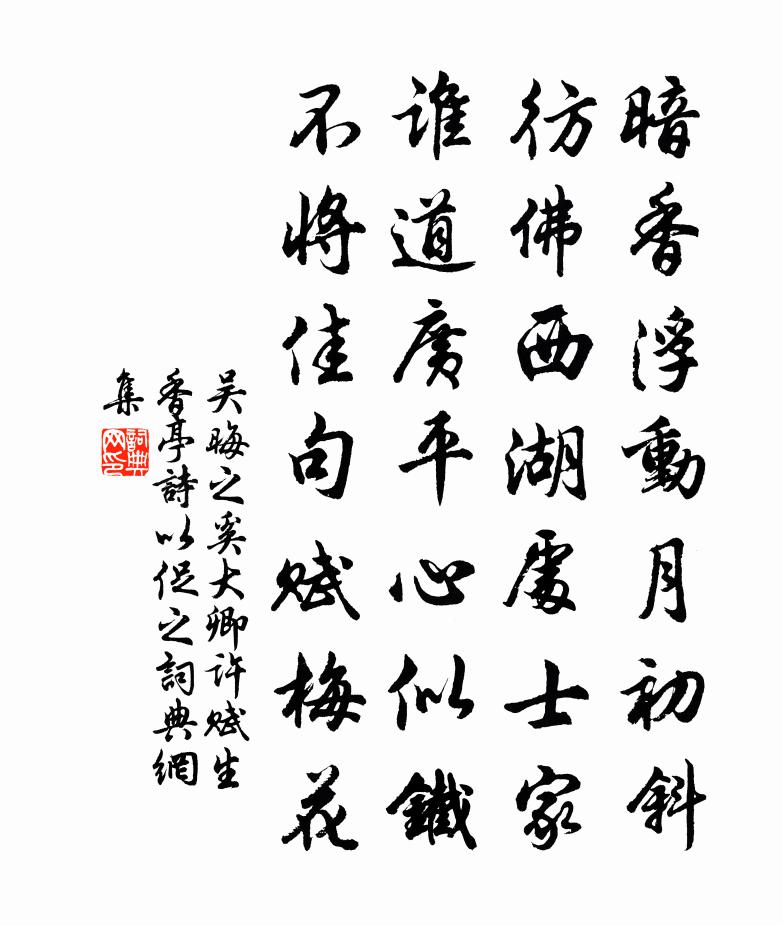 暗香浮動月初斜
彷佛西湖處士家
誰道廣平心似鐵
不將佳句賦梅花
吴晦之奚大卿许赋生
香亭詩以促之詞典網
集
詞典網印